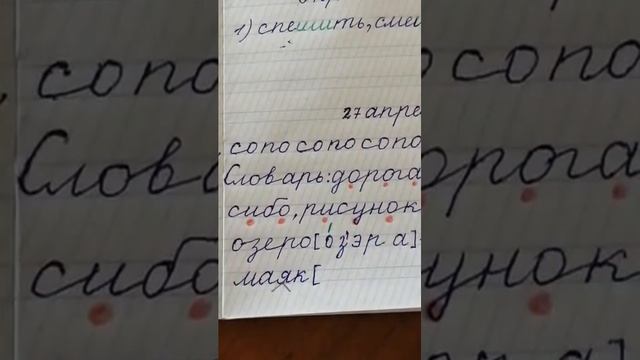 1) спешить, сме
27 апре
сопосопосопо
Словарь: дорога
сибо, рисунок
озеро [о́з'эр а]
маяк [